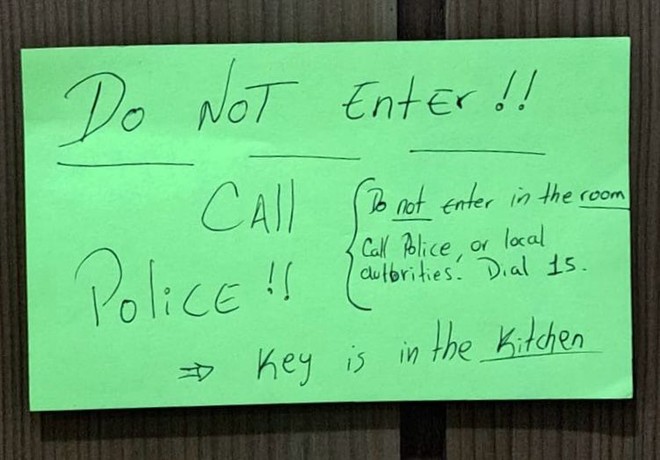 Do NOT Enter!!
CAll
Police!!
Do not enter in the room
Call Police, or local
autorities. Dial 15.
⇒ Key is in the Kitchen